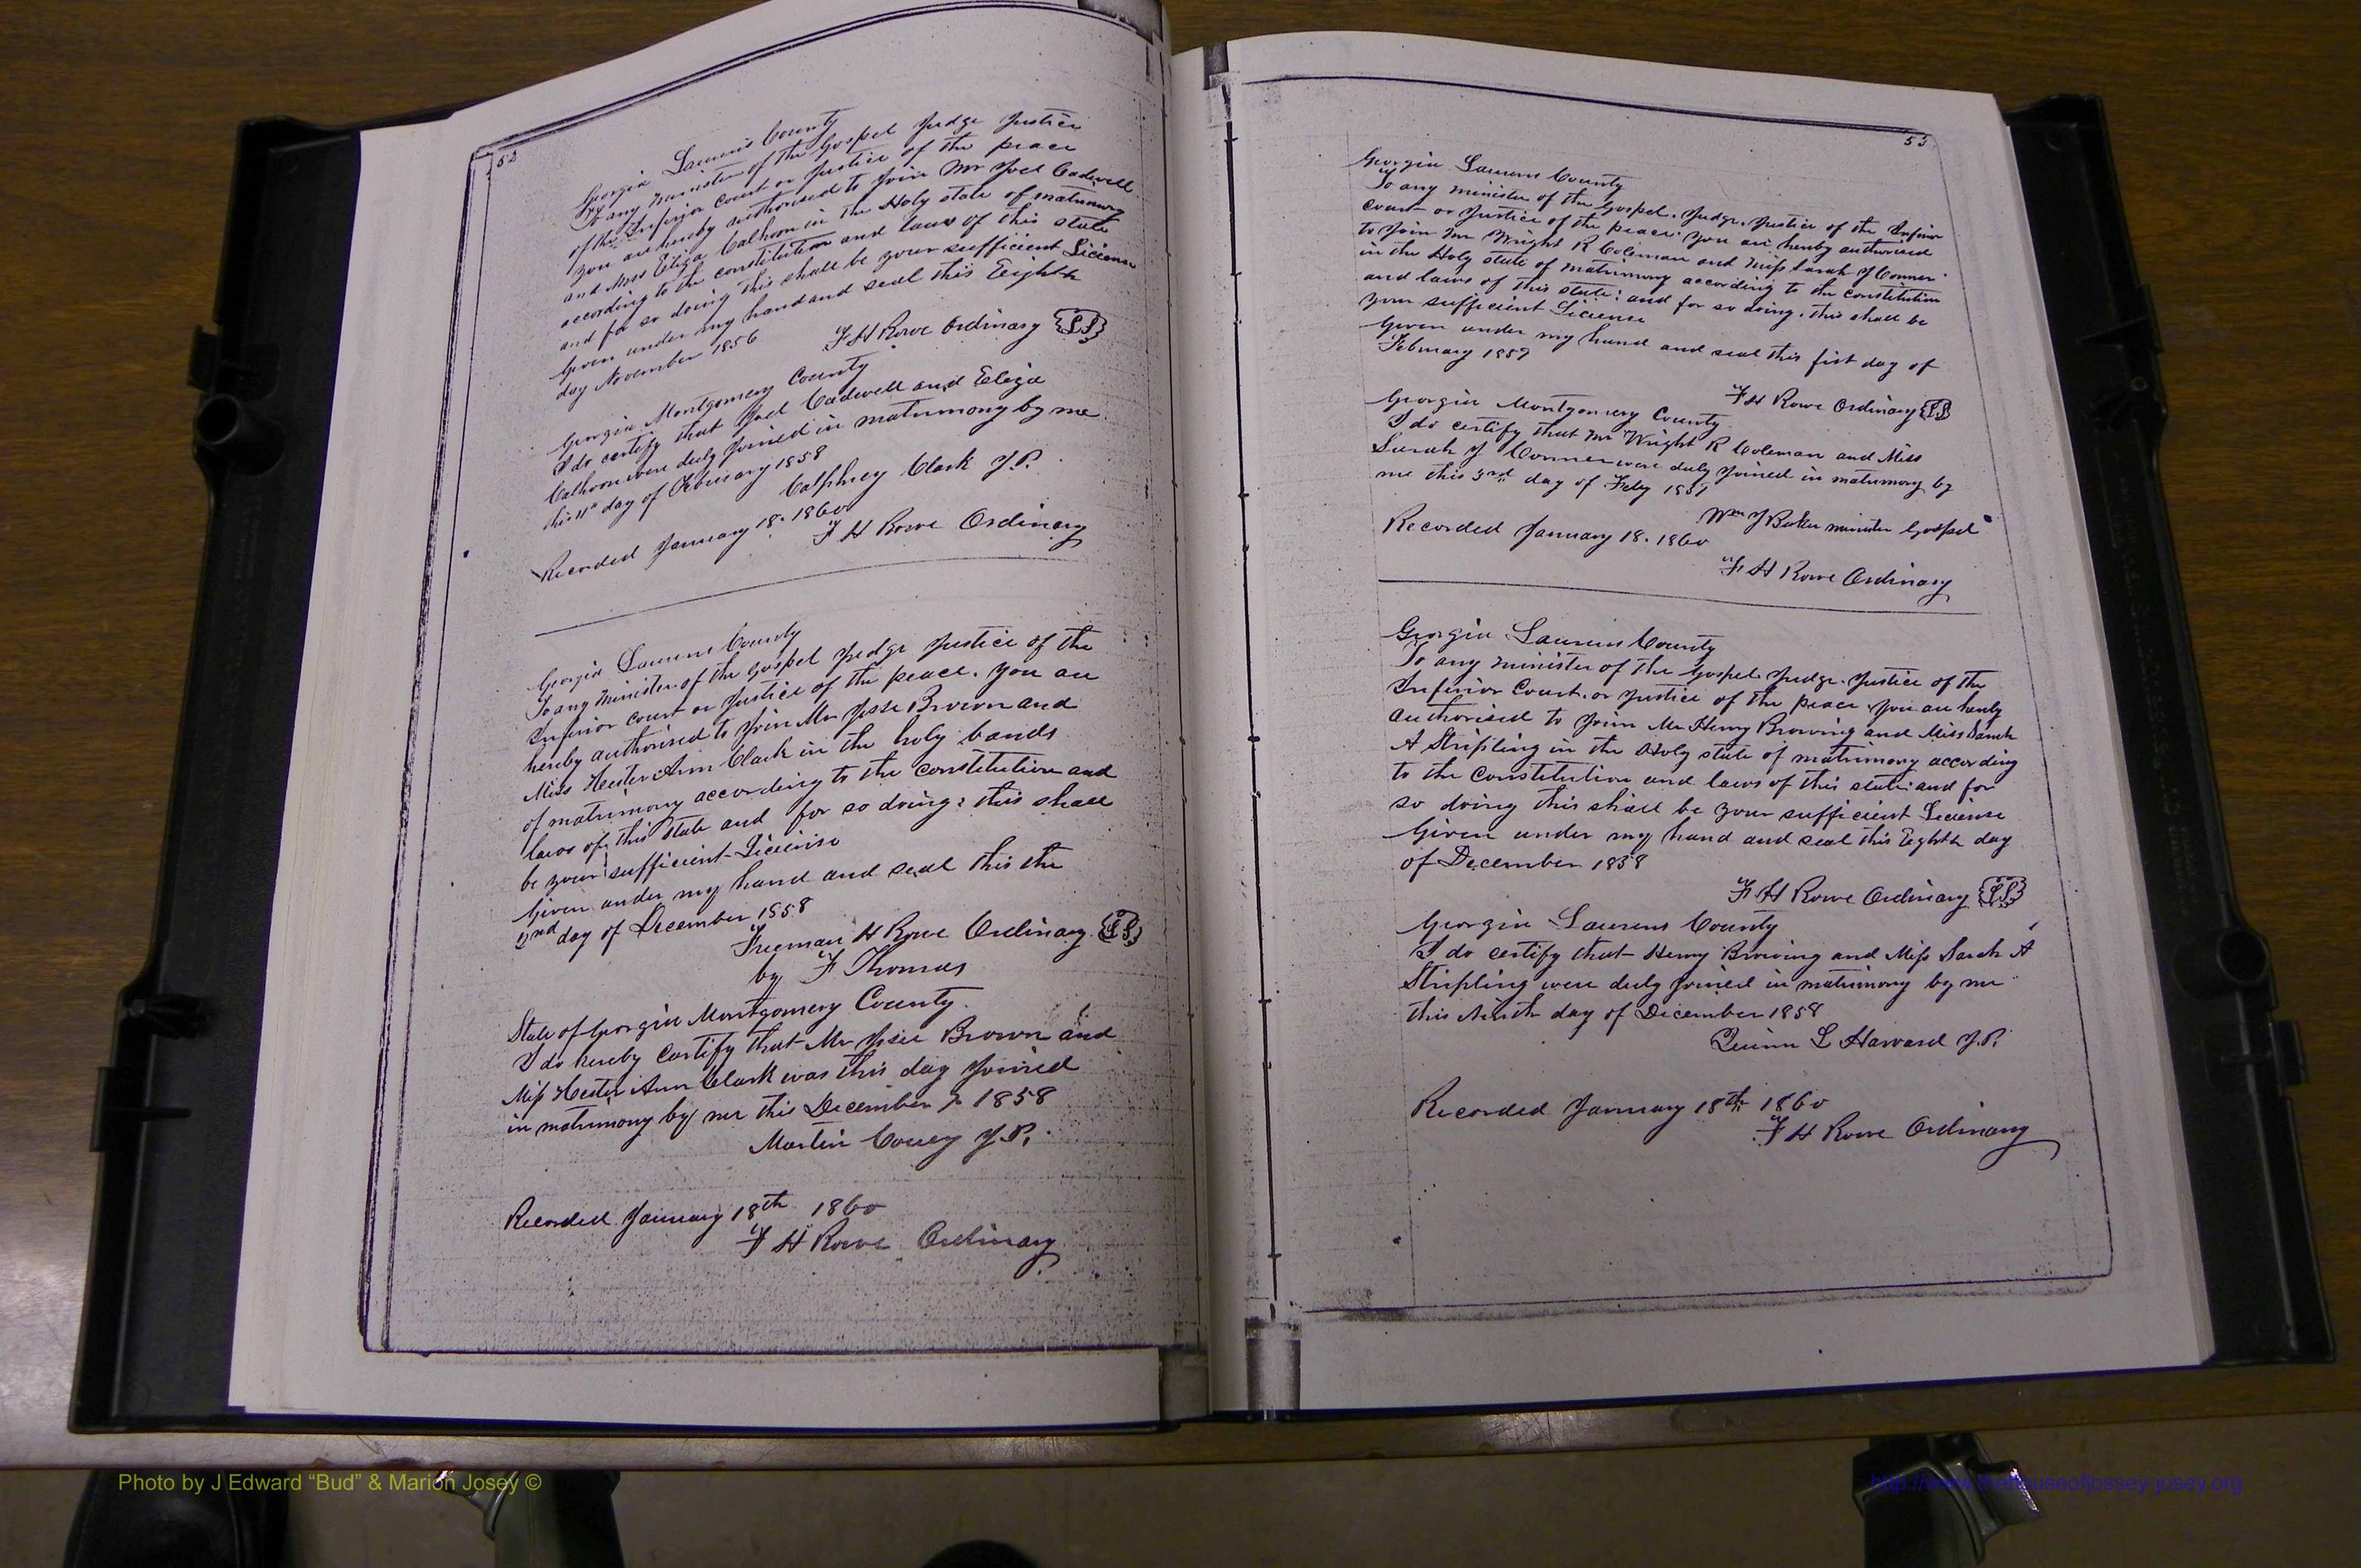 52
Georgia Laurens County
To any minister of the Gospel Judge Justice
of the Inferior Court or Justice of the peace
you are hereby authorised to Join Mr Joel Cadwell
and Miss Eliza Calhoon in the Holy state of matrimony
according to the constitution and laws of this state
and for so doing this shall be your sufficient License
Given under my hand and seal this Eighth
day November 1856
F H Rowe Ordinary LS
Georgia Montgomery County
I do certify that Joel Cadwell and Eliza
Calhoon were duly Joined in matrimony by me
this day of February 1858
Calphrey Clark J.P.
Recorded January 18. 1860
F H Rowe Ordinary
Georgia Laurens County
To any minister of the Gospel Judge Justice of the
Inferior Court or Justice of the peace. you are
hereby authorised to Join Mr Jesse Brown and
Miss Hester Ann Clark in the holy bands
of matrimony according to the constitution and
laws of this state and for so doing: this shall
be your sufficient License
Given under my hand and seal this the
2nd day of December 1858
Freeman H Rowe Ordinary LS
by F Thomas
State of Georgia Montgomery County
I do hereby Certify that Mr Jesse Brown and
Miss Hester Ann Clark was this day Joined
in matrimony by me this December 1858
Martin J.P.
Recorded January 18th 1860
F H Rowe Ordinary
53
Georgia Laurens County
To any minister of the Gospel. Judge. Justice of the Inferior
Court or Justice of the peace. you are hereby authorised
to Join Mr Wright R Coleman and Miss Sarah J Conner
in the Holy state of matrimony according to the Constitution
and laws of this state: and for so doing. this shall be
your sufficient License
Given under my hand and seal this first day of
February 1857
F H Rowe Ordinary LS
Georgia Montgomery County
I do certify that Mr Wright R Coleman and Miss
Sarah J Conner were duly Joined in matrimony by
me this 3rd day of Feby 1857
Wm J Baker minister Gospel
Recorded January 18. 1860
F H Rowe Ordinary
Georgia Laurens County
To any minister of the Gospel. Judge. Justice of the
Inferior Court. or Justice of the peace you are hereby
authorised to Join Mr Henry Browing and Miss Sarah
A Stripling in the Holy state of matrimony according
to the Constitution and laws of this state: and for
so doing this shall be your sufficient License
Given under my hand and seal this Eighth day
of December 1858
F H Rowe Ordinary LS
Georgia Laurens County
I do certify that Henry Browing and Miss Sarah A
Stripling were duly Joined in matrimony by me
this Ninth day of December 1858
Quinn L Harvard J.P.
Recorded January 18th 1860
F H Rowe Ordinary
Photo by J Edward “Bud” & Marion Josey ©
http://www.thehouseofjossey-josey.org